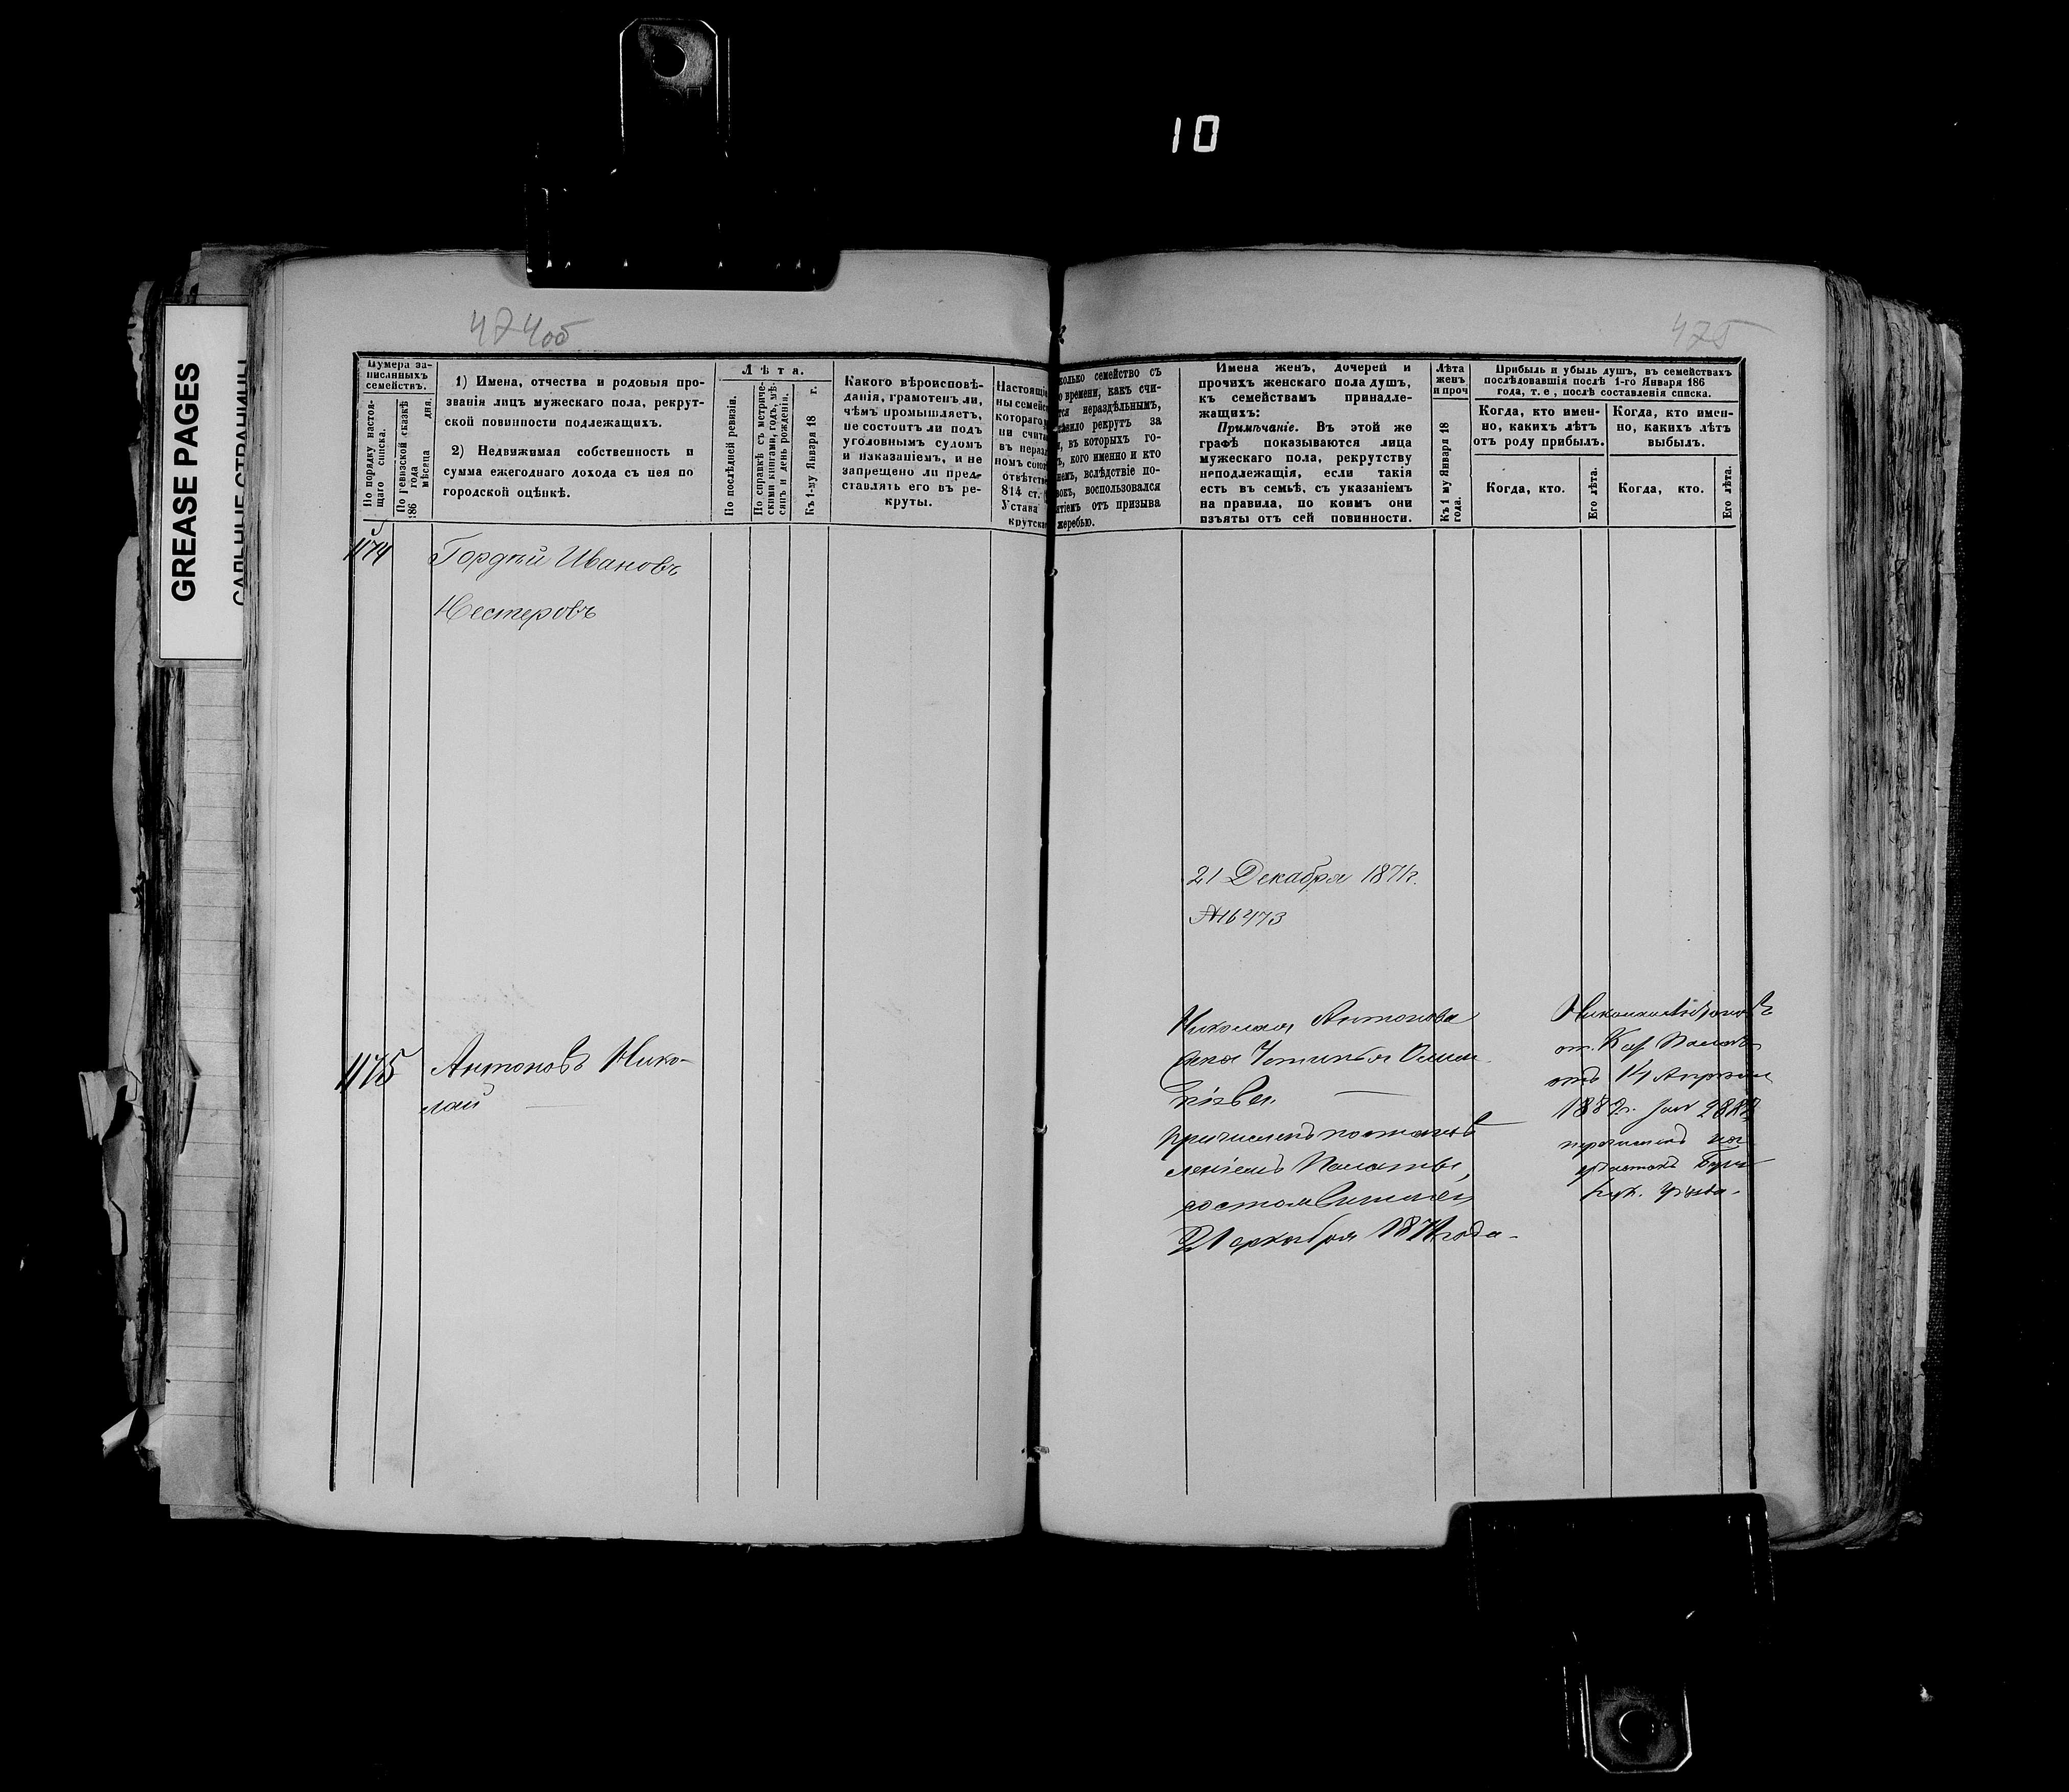 10
GREASE PAGES
474 об
475
Нумера за-
писанныхъ
семействъ.
По порядку настоя-
щаго списка.
По ревизской сказкѣ
186 года
мѣсяца дня.
1) Имена, отчества и родовыя про-
званія лицъ мужескаго пола, рекрут-
ской повинности подлежащихъ.
2) Недвижимая собственность и
сумма ежегоднаго дохода съ нея по
городской оцѣнкѣ.
Лѣта.
По послѣдней ревизіи.
По справкѣ съ метриче-
скими книгами, годъ, мѣ-
сяцъ и день рожденія.
Къ 1-му Января 18 г.
Какого вѣроисповѣ-
данія, грамотенъ ли,
чѣмъ промышляетъ,
не состоитъ ли подъ
уголовнымъ судомъ
и наказаніемъ, и не
запрещено ли пред-
ставлять его въ ре-
круты.
Настоящі
ны семейс
котораго
ни счита
въ нераз
номъ союз
отвѣтств
814 ст.
Устава
крутска
колько семейство съ
о времени, какъ счи-
тся нераздѣльнымъ,
авило рекрутъ за
, въ которыхъ го-
ъ, кого именно и кто
немъ, вслѣдствіе по-
вокъ, воспользовался
ятіемъ отъ призыва
жеребью.
Имена женъ, дочерей и
прочихъ женскаго пола душъ,
къ семействамъ принадле-
жащихъ:
Примѣчаніе. Въ этой же
графѣ показываются лица
мужескаго пола, рекрутству
неподлежащія, если такія
есть въ семьѣ, съ указаніемъ
на правила, по коимъ они
изъяты отъ сей повинности.
Лѣта
женъ
и проч
Къ 1 му Января 18
года.
Прибыль и убыль душъ, въ семействахъ
послѣдовавшія послѣ 1-го Января 186
года, т. е, послѣ составленія списка.
Когда, кто имен-
но, какихъ лѣтъ
отъ роду прибылъ.
Когда, кто имен-
но, какихъ лѣтъ
выбылъ.
Когда, кто.
Его лѣта.
Когда, кто.
Его лѣта.
1174 Гордѣй Ивановъ
Нестеровъ
21 Декабря 1871г.
№16473
1175 Антоновъ Нико-
лай
Николая Антонова
жена Устинья
причисленъ постанов
леніемъ Палаты,
состоявшимся
21 декабря 1871 года.
Николай Антоновъ
от. Каз. Палаты
отъ 14 Апрѣля
1882г. за №
перечисленъ
уѣзда.